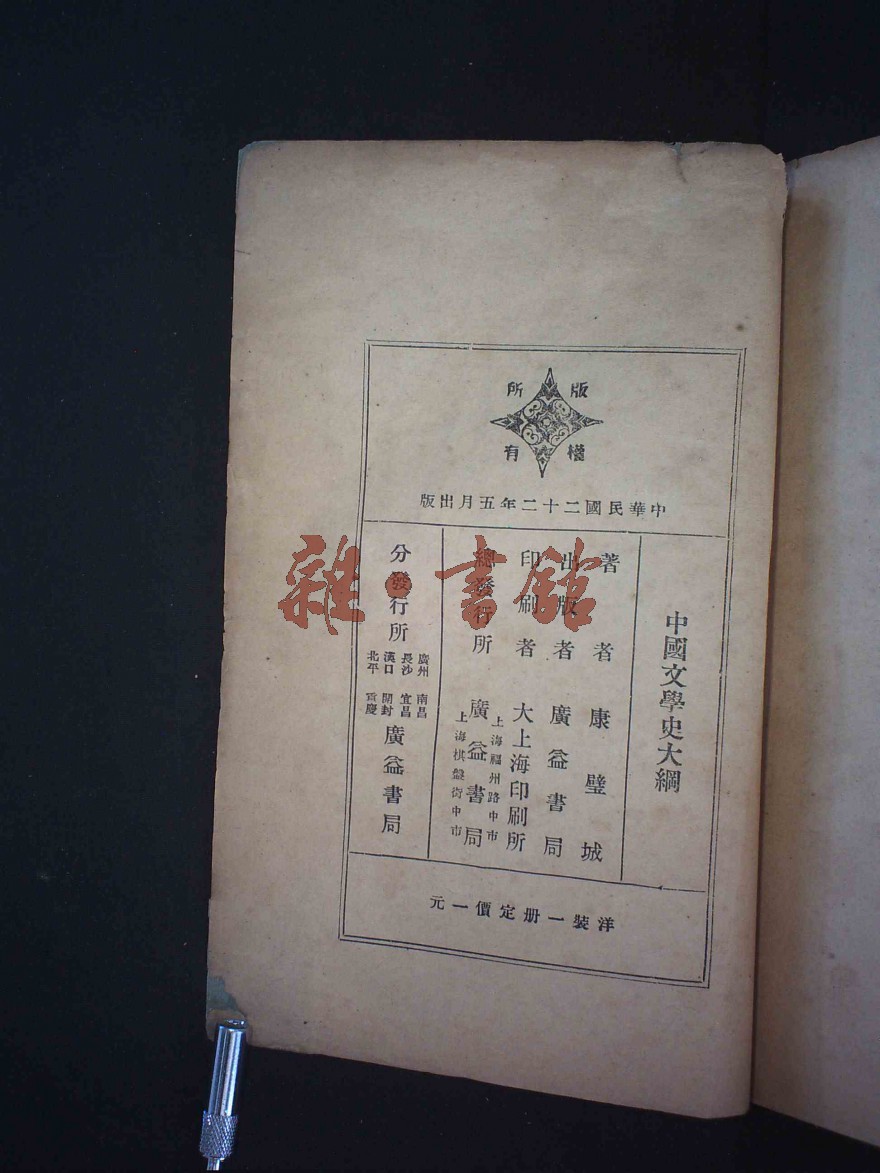 版權所有
中華民國二十二年五月出版
中國文學史大綱
著者 康璧城
出版者 廣益書局
印刷者 大上海印刷所
總發行所 廣益書局
上海福州路中市
上海棋盤街中市
分發行所 廣益書局
廣州 南昌
長沙 宜昌
漢口 開封
北平 重慶
洋裝一册定價一元
雜·書館